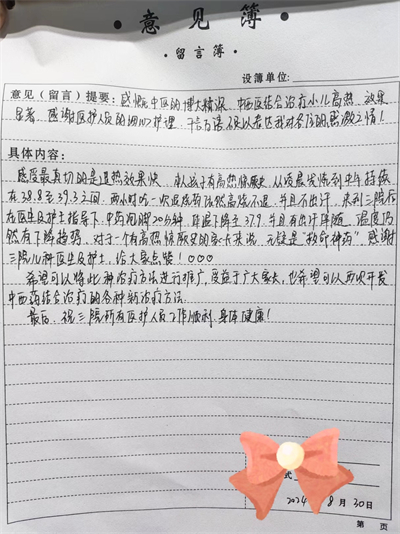 ·意见簿·
·留言簿·
设簿单位:
意见(留言)提要: 感慨中医的博大精深 中西医结合治疗小儿高热 效果
显著 感谢医护人员的细心护理 千言万语 不足以表达我对各位的感激之情!
具体内容:
感受最真切的是退热效果快 本人孩子有高热惊厥史 从凌晨发烧到中午持续
在38.8至39.3之间 两小时吃一次退烧药依然高烧不退 并且不出汗 来到三院后
在医生及护士指导下 中药泡脚20分钟 体温下降至37.9 并且有出汗 伴随 温度仍
然有下降趋势 对于一个有高热惊厥史的家长来说 无疑是“救命神药” 感谢
三院儿科医生及护士 给大家点赞!
希望可以将此种治疗方法进行推广 受益于广大家长 也希望可以再次开发
中西药结合治疗的各种新治疗方法
最后 祝三院所有医护人员工作顺利 身体健康!
式
2024 8月30日
第 页